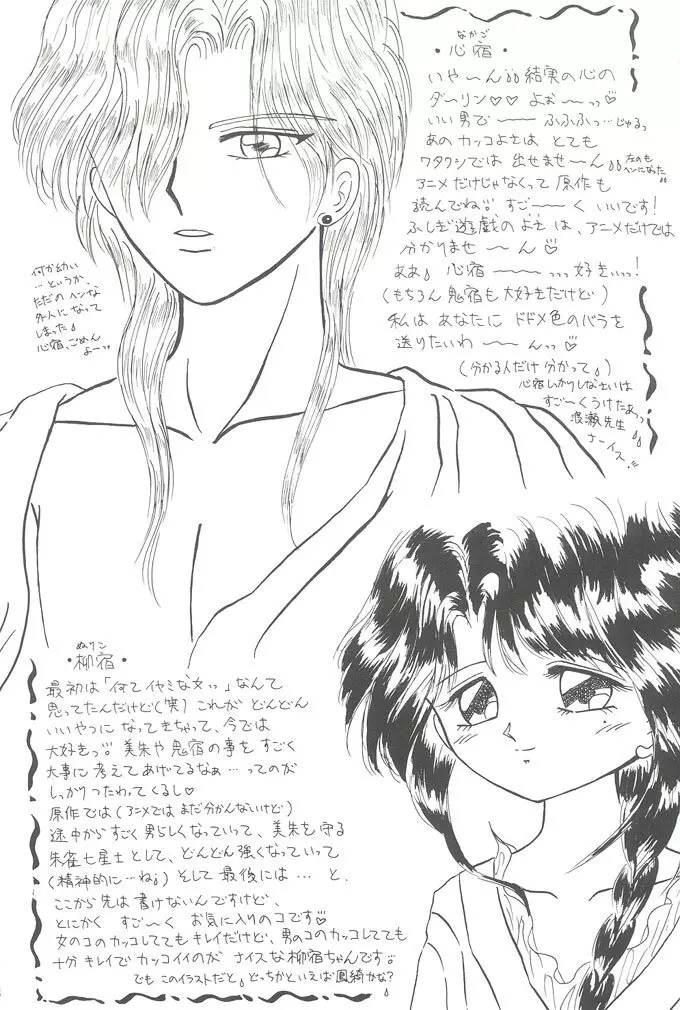 なかご
・心宿・
いや〜ん💧結実の心の
ダーリン♡♡ よぉ〜〜っ♡
いい男で〜〜 ふふふっ…じゅるっ
あのカッコよさは とても
ワタクシでは 出せませ〜ん💧 左のも
ヘンになった
アニメだけじゃなくって 原作も
読んでね。すご〜〜く いいです!
ふしぎ遊戯のよさ は、アニメだけでは
分かりませ 〜 ん♡
ああ 心宿 〜〜〜 っっ好きぃっ!
(もちろん 鬼宿も 大好きだけど)
私は あなたに ドドメ色のバラを
送りたいわ 〜〜 んっっ♡
(分かる人だけ 分かって)
心宿しかりしなさいは
すご〜くうけたぁっっ
渡瀬先生
ナーイス!!
何か幼い
…というか、
ただの ヘンな
外人に なって
しまった
心宿、ごめん
よーっ
ぬりこ
・柳宿・
最初は「何てイヤミな女っっ」なんて
思ってたんだけど(笑) これが どんどん
いいやつに なってきちゃって、今では
大好きっ 美朱や 鬼宿の事を すごく
大事に 考えてあげてるなぁ…ってのが
しっかりつたわってくるし♡
原作では(アニメでは まだ分かんないけど)
途中から すごく 男らしくなっていって、美朱を守る
朱雀七星士として、どんどん強くなっていって
(精神的に…ね) そして 最後には… と、
ここから先は書けないんですけど、
とにかく すご〜く お気に入りのコです♡
女のコのカッコしてても キレイだけど、男のコのカッコしてても
十分キレイで カッコイイのが ナイスな柳宿ちゃんです。
でも このイラストだと、どっちかといえば鳳綺かな?